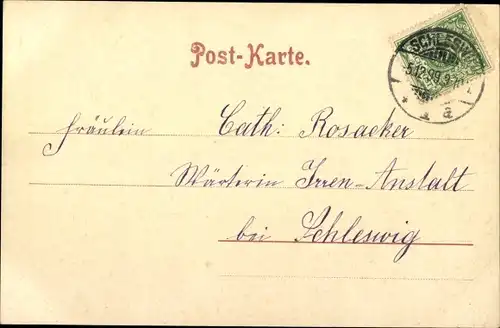 Post-Karte.
SCHLESWIG
5.12.99.9-
* a *
Fräulein Cath: Rosacker
Wärterin Irren-Anstalt
bei Schleswig